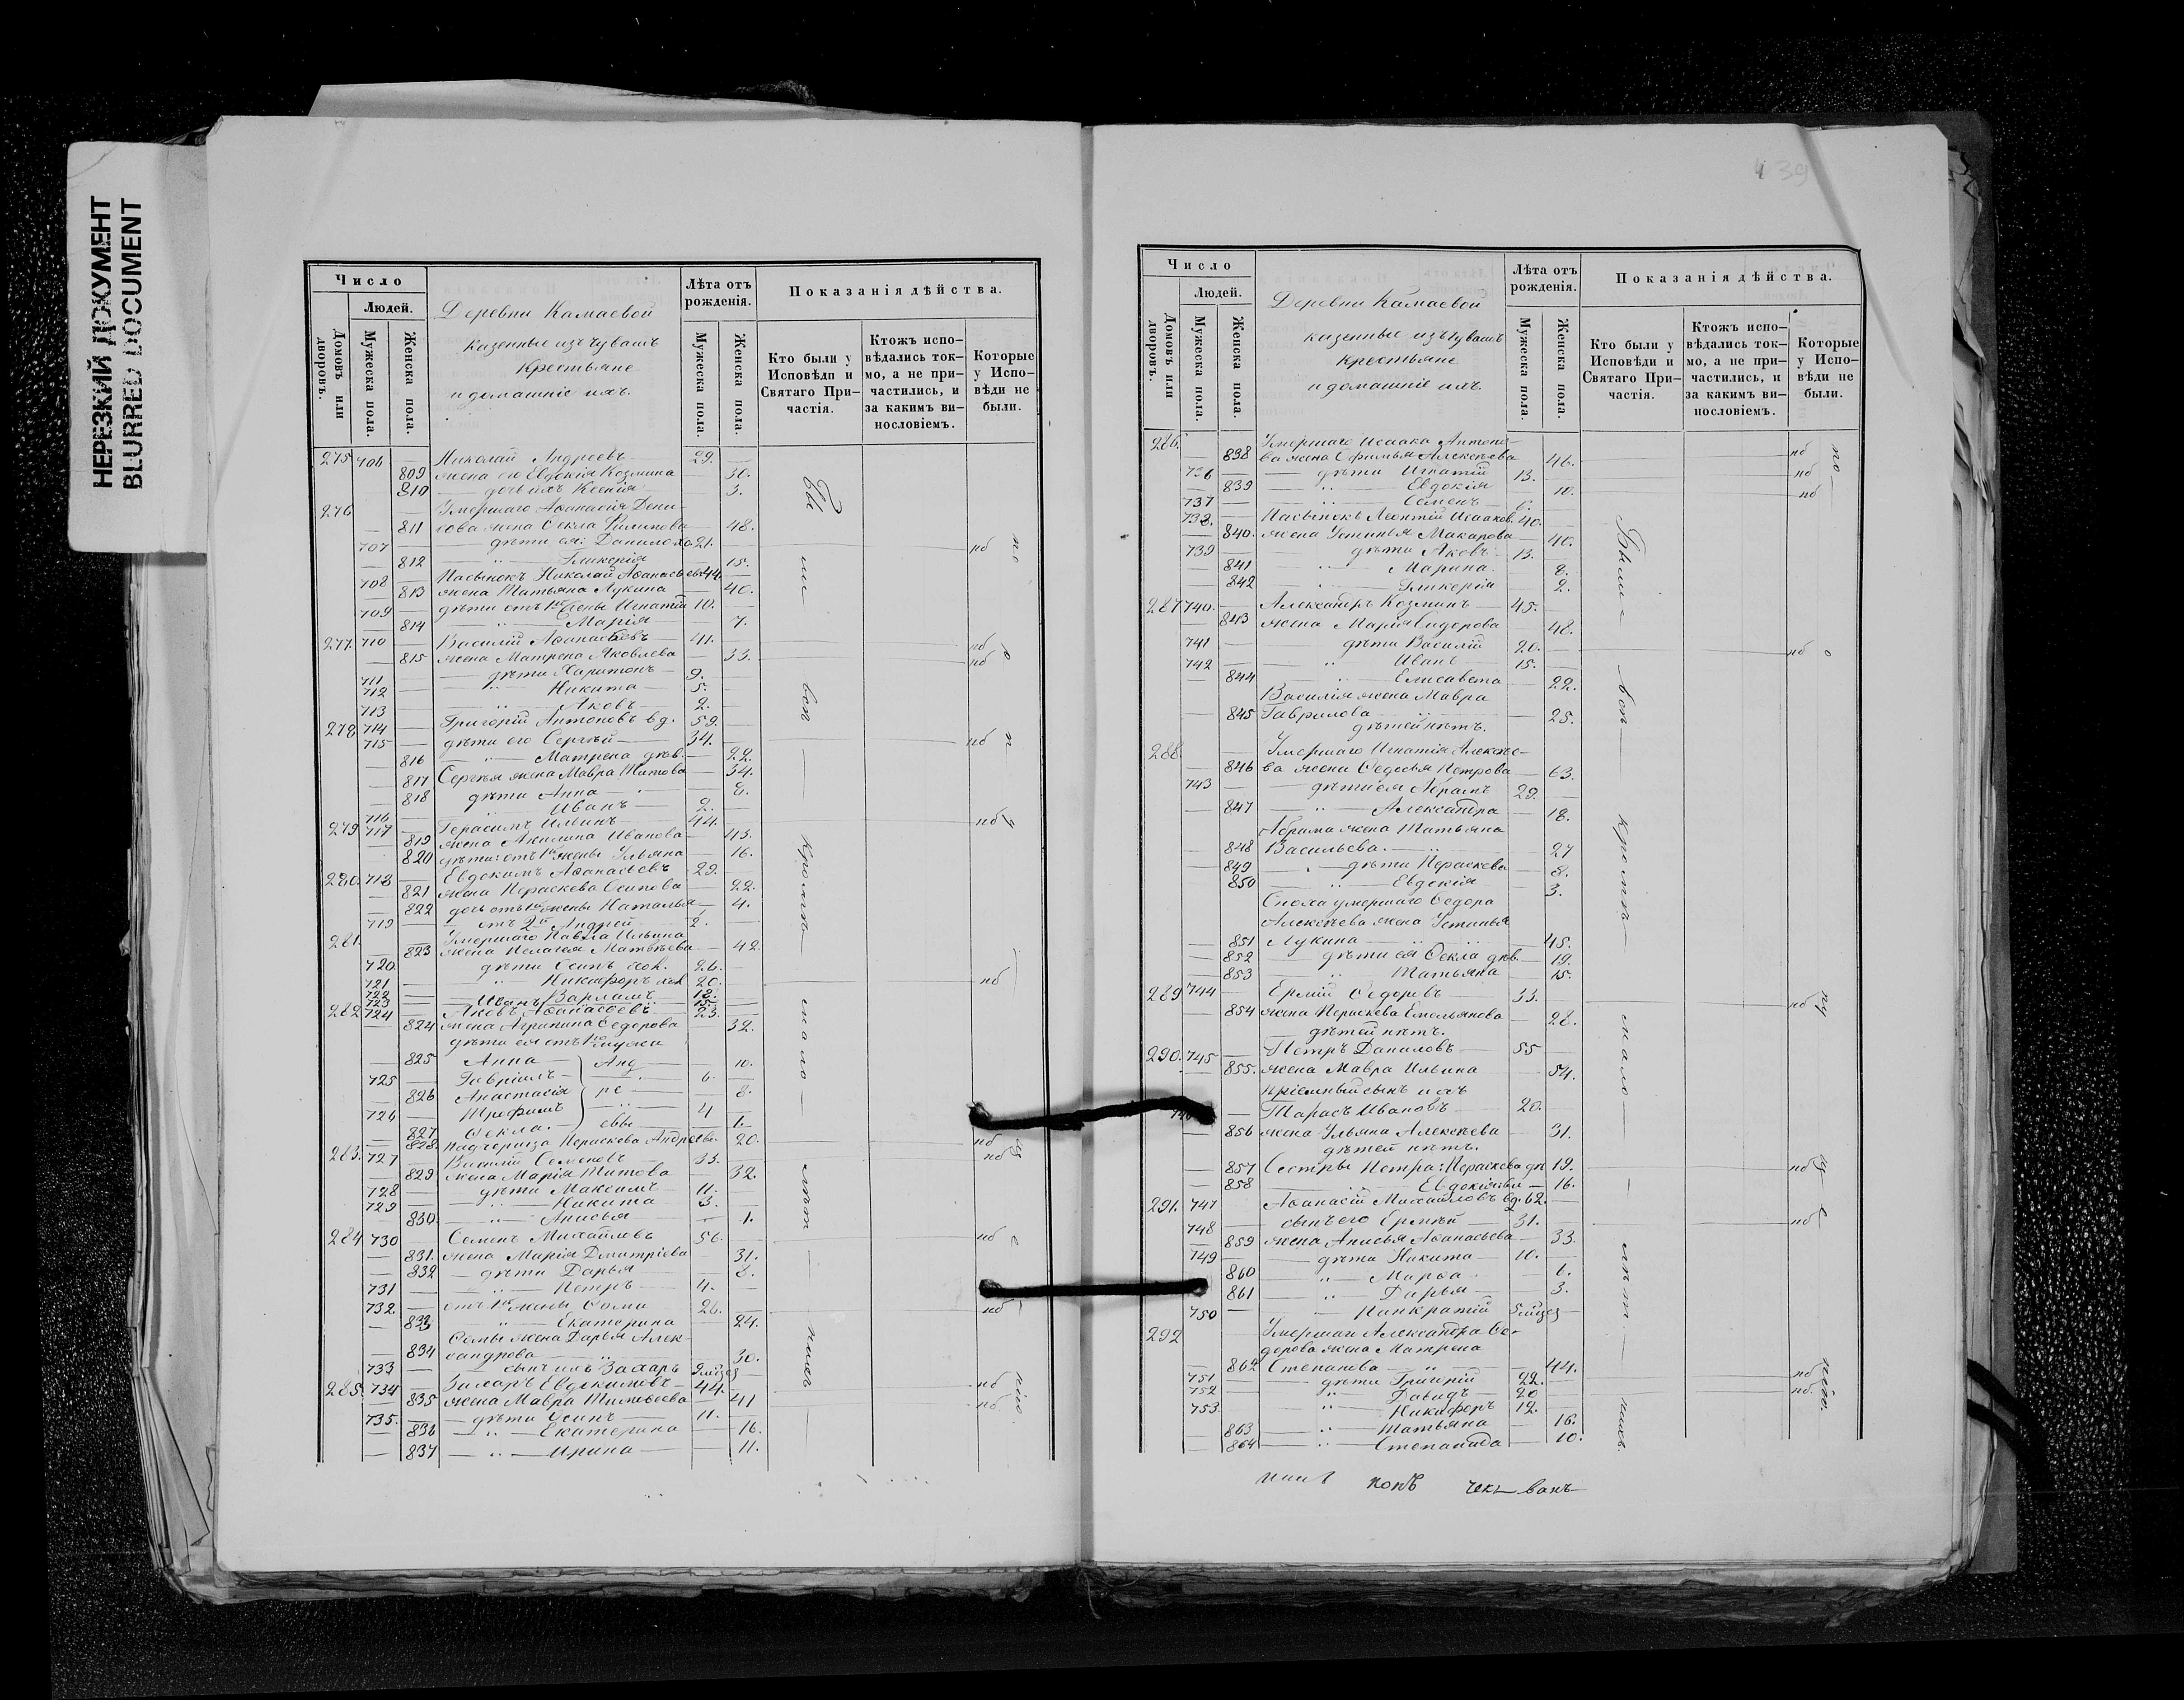 НЕРЕЗКИЙ ДОКУМЕНТ
BLURRED DOCUMENT
Число
Людей.
Домовъ или дворовъ.
Мужеска пола.
Женска пола.
Деревни Камаевой
казенные изъ чувашъ
крестьяне
и домашніе ихъ.
Лѣта отъ рожденія.
Мужеска пола.
Женска пола.
Показанія дѣйства.
Кто были у Исповѣди и Святаго Причастія.
Ктожъ исповѣдались токмо, а не причастились, и за какимъ винословіемъ.
Которые у Исповѣди не были.
275 706 Николай Андреевъ 29.
809 жена его Евдокія Козмина 30.
810 дочь ихъ Ксенія 3.
276 Умершаго Аѳанасія Дени-
811 сова жена Ѳекла Филипова 48.
707 дѣти ея: Данило хо. 21. нб
812 " Гликерія 15.
708 Пасынокъ Николай Аѳанасьевъ 44.
813 жена Татьяна Лукина 40.
709 дѣти отъ 1й жены Игнатій 10.
814 " Марія 7.
277. 710 Василій Аѳанасьевъ 41. нб
815 жена Матрена Яковлева 33. нб
711 дѣти Харитонъ 9.
712 " Никита 5.
713 " Яковъ 2.
278 714 Григорій Антоновъ вд. 59.
715 дѣти его Сергѣй 34. нб
816 " Матрена дѣв. 22.
817 Сергѣя жена Мавра Титова 34.
818 дѣти Анна 8.
716 " Иванъ 2.
279 717 Герасимъ Ильинъ 44. нб
819 жена Акилина Иванова 43.
820 дѣти: отъ 1й жены Ульяна 16.
280. 718 Евдокимъ Аѳанасьевъ 29.
821 жена Пераскева Осипова 22.
822 дочь отъ 1й жены Наталья 4.
719 отъ 2й Андрей 2.
281. Умершаго Павла Ильина
823 жена Пелагея Матвѣева 42.
720. дѣти Осипъ хол. 26.
721 " Никифоръ хол 20. нб
722 Варламъ 18.
723 Иванъ 15.
282 724 Яковъ Аѳанасьевъ 23.
824 жена Агрипина Ѳедорова 32.
дѣти ея отъ 1го мужа
825 Анна Анд 10.
725 Гавріилъ 6.
826 Анастасія ре 8.
726 Трефилъ 4
827 Ѳекла. евы 6
828. Падчерица Пераскева Андреева 20. нб
283. 727 Василій Семеновъ 33. нб
829 жена Марія Титова 32.
728 дѣти Максимъ 11.
729 " Никита 3.
830. " Анисья 1.
284 730 Семенъ Михайловъ 56. нб
831. жена Марія Дмитріева 31.
832 дѣти Дарья 8.
731 " Петръ 4.
732. отъ 1й жены Ѳома 26. нб
833 " Екатерина 24.
Ѳомы жена Дарья Алек-
834 сандрова 30.
733 сынъ ихъ Захаръ
285. 734 Захаръ Евдокимовъ 44. нб
835 жена Мавра Тимоѳеева 41 нб.
735. дѣти Осипъ 11.
836 " Екатерина 16.
837 " Ирина 11.
Бы ли воп кромѣ мало лѣт нихъ
439
Число
Людей.
Домовъ или дворовъ.
Мужеска пола.
Женска пола.
Деревни Камаевой
казенные изъ чувашъ
крестьяне
и домашніе ихъ.
Лѣта отъ рожденія.
Мужеска пола.
Женска пола.
Показанія дѣйства.
Кто были у Исповѣди и Святаго Причастія.
Ктожъ исповѣдались токмо, а не причастились, и за какимъ винословіемъ.
Которые у Исповѣди не были.
286. Умершаго Исаака Антоно-
838 ва жена Ефимья Алексѣева 46. нб
736 дѣти Игнатій 13. нб
839 " Евдокія 10. нб
737 " Семенъ 6.
738. Пасынокъ Леонтій Исааков. 40.
840. жена Устинья Макарова 40.
739 дѣти Яковъ 13.
841 " Марина. 8.
842 " Гликерія 2.
287 740. Александръ Козминъ 45.
843 жена Марія Сидорова 48.
741 дѣти Василій 20. нб
742 " Иванъ 15.
844 " Елисавета 22.
Василія жена Мавра
845 Гаврилова 25.
дѣтей нѣтъ.
288. Умершаго Игнатія Алексѣе-
846 ва жена Ѳедосья Петрова 63.
743 дѣти ея Абрамъ 29.
847 " Александра 18.
Абрама жена Татьяна
848 Васильева. 27
849 дѣти Пераскева 8.
850 " Евдокія 3.
Сноха умершаго Ѳедора
Алексѣева жена Устинья
851 Лукина 45.
852 дѣти ея Ѳекла дѣв. 19.
853 " Татьяна 15.
289 744 Ермій Ѳедоровъ 33. нб
854 жена Пераскева Емельянова 28.
дѣтей нѣтъ.
290. 745 Петръ Даниловъ 55
855. жена Мавра Ильина 54.
пріемный сынъ ихъ
746 Тарасъ Ивановъ 20.
856 жена Ульяна Алексѣева 31.
дѣтей нѣтъ.
857 Сестры Петра: Пераскева дѣ 19. нб
858 Евдокія 16.
291. 747 Аѳанасій Михайловъ вд. 62.
748 сынъ его Ермѣй 31. нб
859 жена Анисья Аѳанасьева 33.
749 дѣти Никита 10.
860 " Марѳа 6.
861 " Дарья 3.
750 Панкратій
292 Умершаго Александра Ѳе-
дорова жена Матрена
862 Степанова 44.
751 дѣти Григрій 22. нб
752 " Давидъ 20 нб.
753. " Никифоръ 12.
863 " Татьяна 16.
864 " Степанида 10.
Были воп кромѣ мало лѣт нихъ.